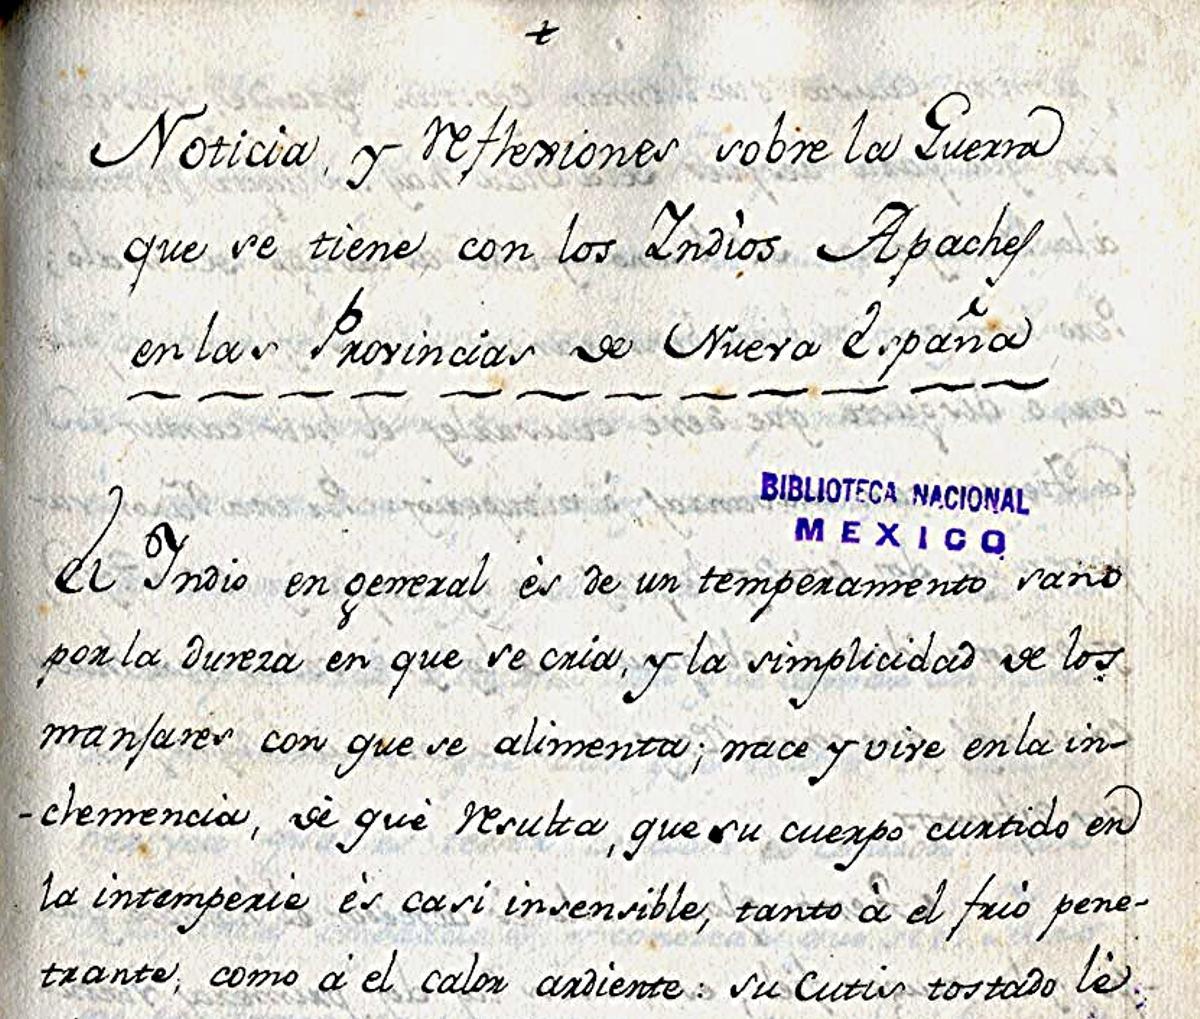 Noticia, y reflexiones sobre la Guerra
que se tiene con los Indios Apaches
en las Provincias de Nueva España
BIBLIOTECA NACIONAL
MEXICO
El Indio en general ès de un temperamento sano
por la dureza en que se cria, y la simplicidad de los
manjares con que se alimenta; nace y vive en la in-
-clemencia, dè què resulta, que su cuerpo curtido en
la intemperie ès casi insensible, tanto à el friò pene-
trante, como à el calor ardiente: su Cutis tostado lè